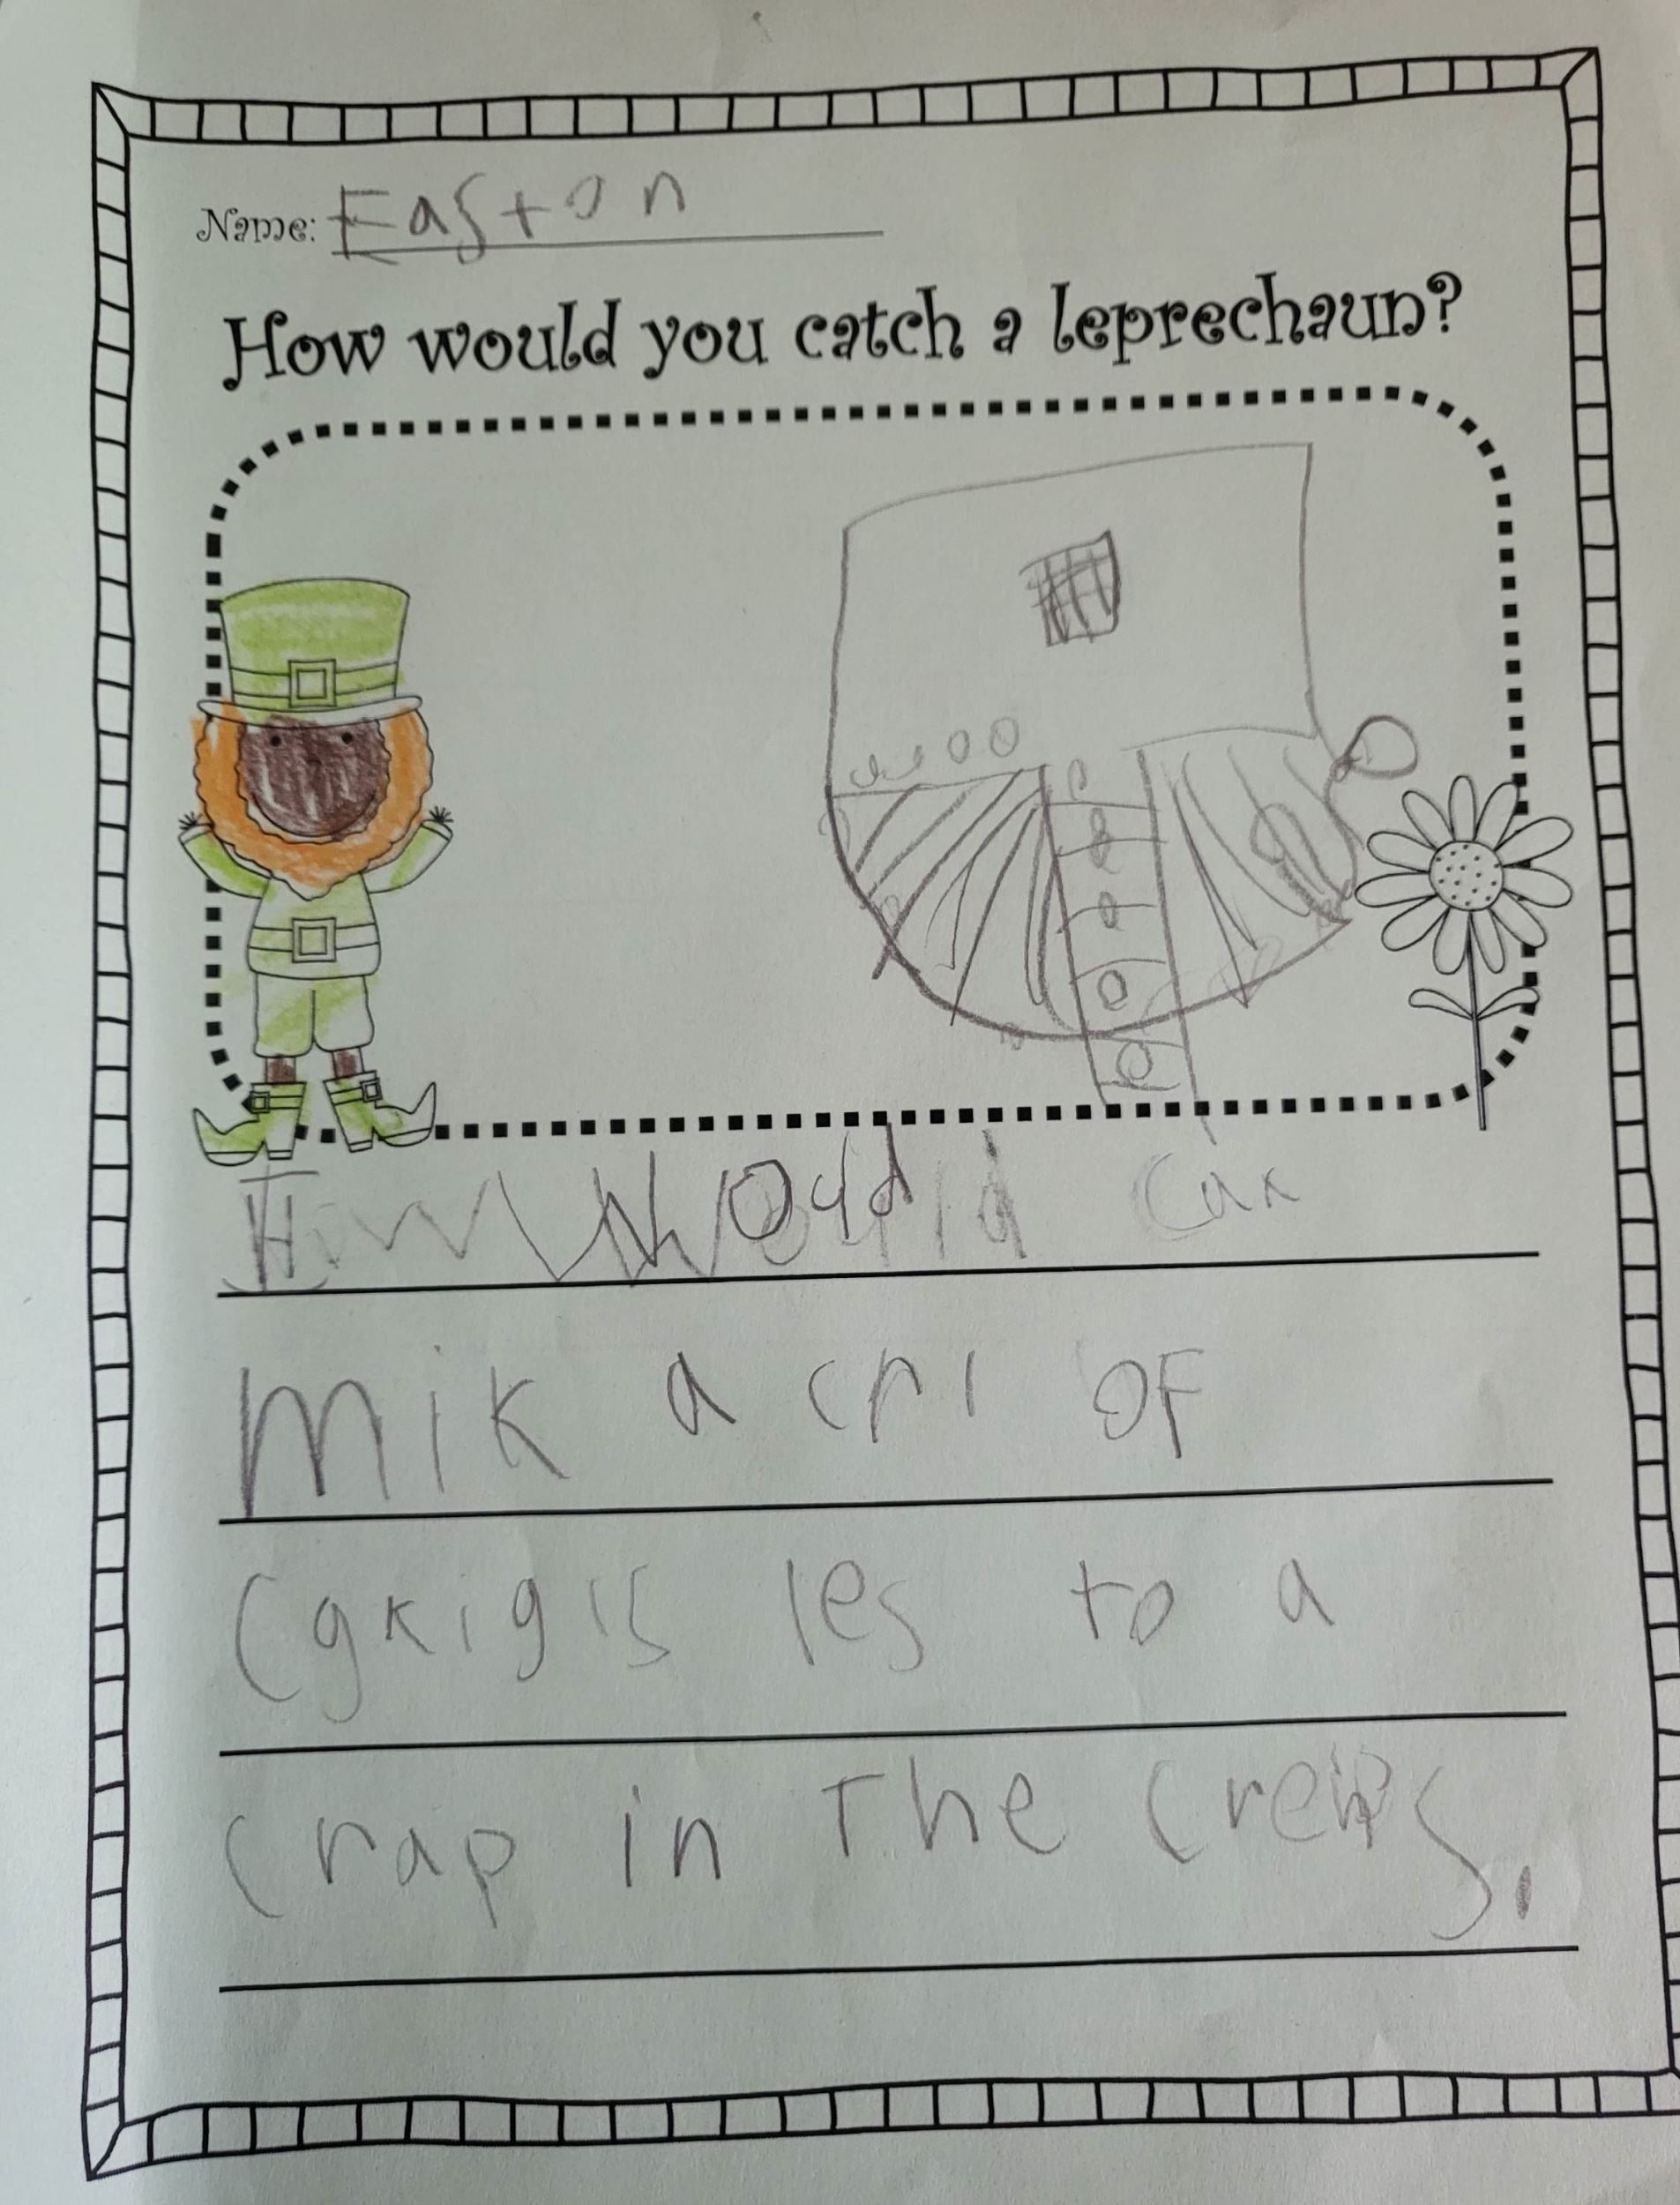 Name: Easton
How would you catch a leprechaun?
Would
mik a cri of
les to a
crap in The